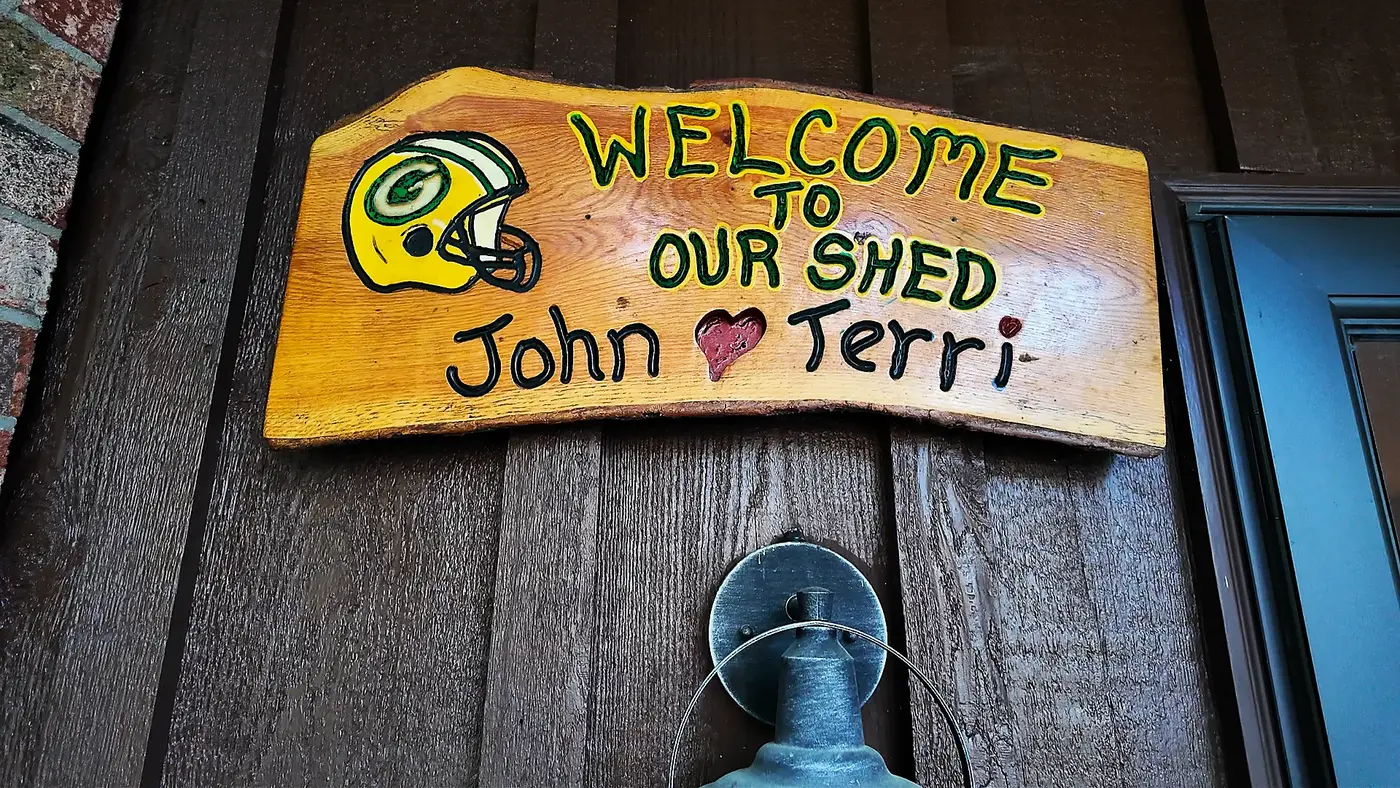 G
WELCOME
TO
OUR SHED
John ❤ Terri